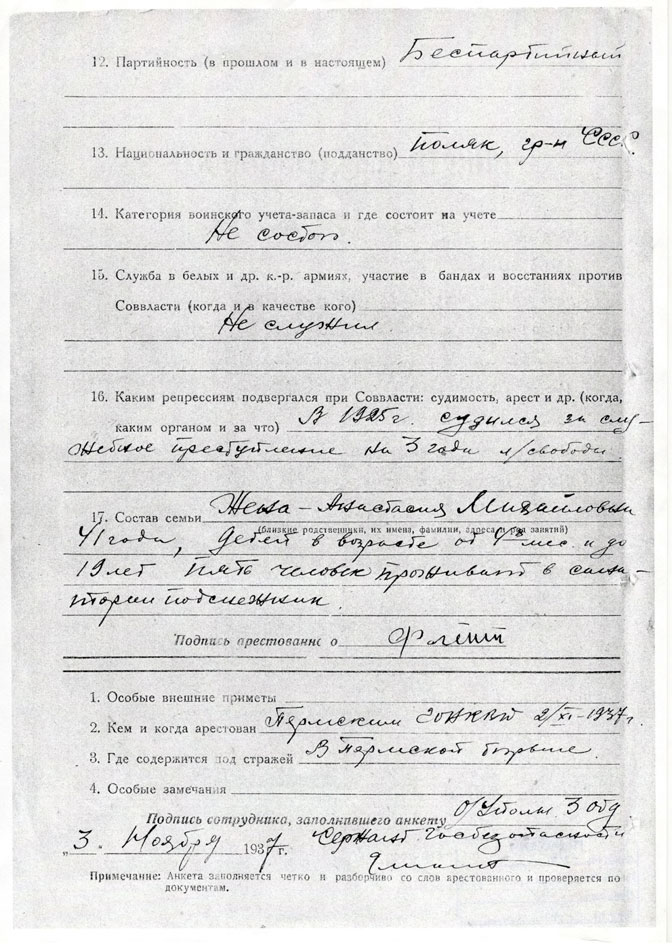 12. Партийность (в прошлом и в настоящем) Беспартийный
13. Национальность и гражданство (подданство) Поляк, гр-н СССР.
14. Категория воинского учета-запаса и где состоит на учете
Не состою.
15. Служба в белых и др. к.-р. армиях, участие в бандах и восстаниях против
Соввласти (когда и в качестве кого)
Не служил.
16. Каким репрессиям подвергался при Соввласти: судимость, арест и др. (когда,
каким органом и за что) В 1925 г. судился за слу-
жебное преступление на 3 года л/свободы.
17. Состав семьи Жена – Анастасия Михайловна
(близкие родственники, их имена, фамилии, адреса и род занятий)
41 года, детей в возрасте от мес. и до
19 лет пять человек проживают в сана-
тории подснежник.
Подпись арестованного
1. Особые внешние приметы
2. Кем и когда арестован Пермским ГОНКВД 2/XI-1937г.
3. Где содержится под стражей В Пермской тюрьме.
4. Особые замечания
Подпись сотрудника, заполнившего анкету О/Уполн. 3 отд
„3. Ноября 1937 г. Сержант госбезопасности
Примечание: Анкета заполняется четко и разборчиво со слов арестованного и проверяется по
документам.